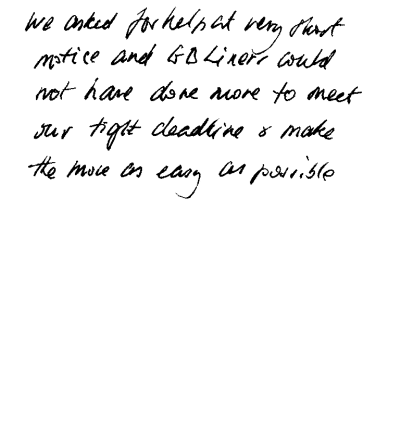 We asked for help at very short
notice and GB Liners could
not have done more to meet
our tight deadline & make
the move as easy as possible